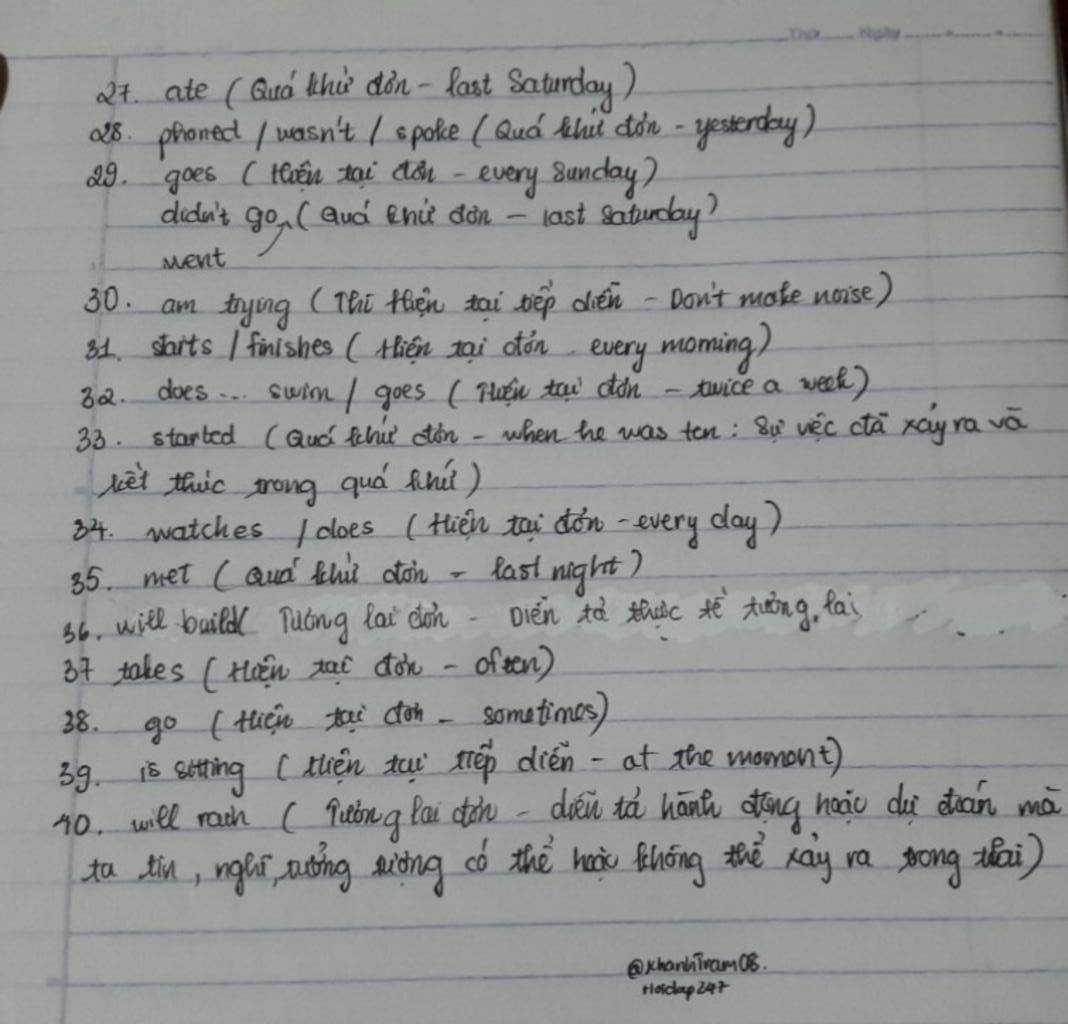 Thứ Ngày
27. ate (Quá khứ đơn - last Saturday)
28. phoned / wasn't / spoke (Quá khứ đơn - yesterday)
29. goes (Hiện tại đơn - every Sunday)
didn't go, (Quá khứ đơn - last Saturday)
went
30. am trying (Thì Hiện tại tiếp diễn - Don't make noise)
31. starts / finishes (Hiện tại đơn - every morning)
32. does ... swim / goes (Hiện tại đơn - twice a week)
33. started (Quá khứ đơn - when he was ten: Sự việc đã xảy ra và
kết thúc trong quá khứ)
34. watches / does (Hiện tại đơn - every day)
35. met (Quá khứ đơn - last night)
36. will build( Tương lai đơn - Diễn tả thực tế tương lai
37 takes (Hiện tại đơn - often)
38. go (Hiện tại đơn - sometimes)
39. is sitting (Hiện tại tiếp diễn - at the moment)
40. will rach ( Tương lai đơn - diễn tả hành động hoặc dự đoán mà
ta tin, nghĩ, tưởng tượng có thể hoặc không thể xảy ra trong tlai)
@KhanhTram08.
Hoidap247